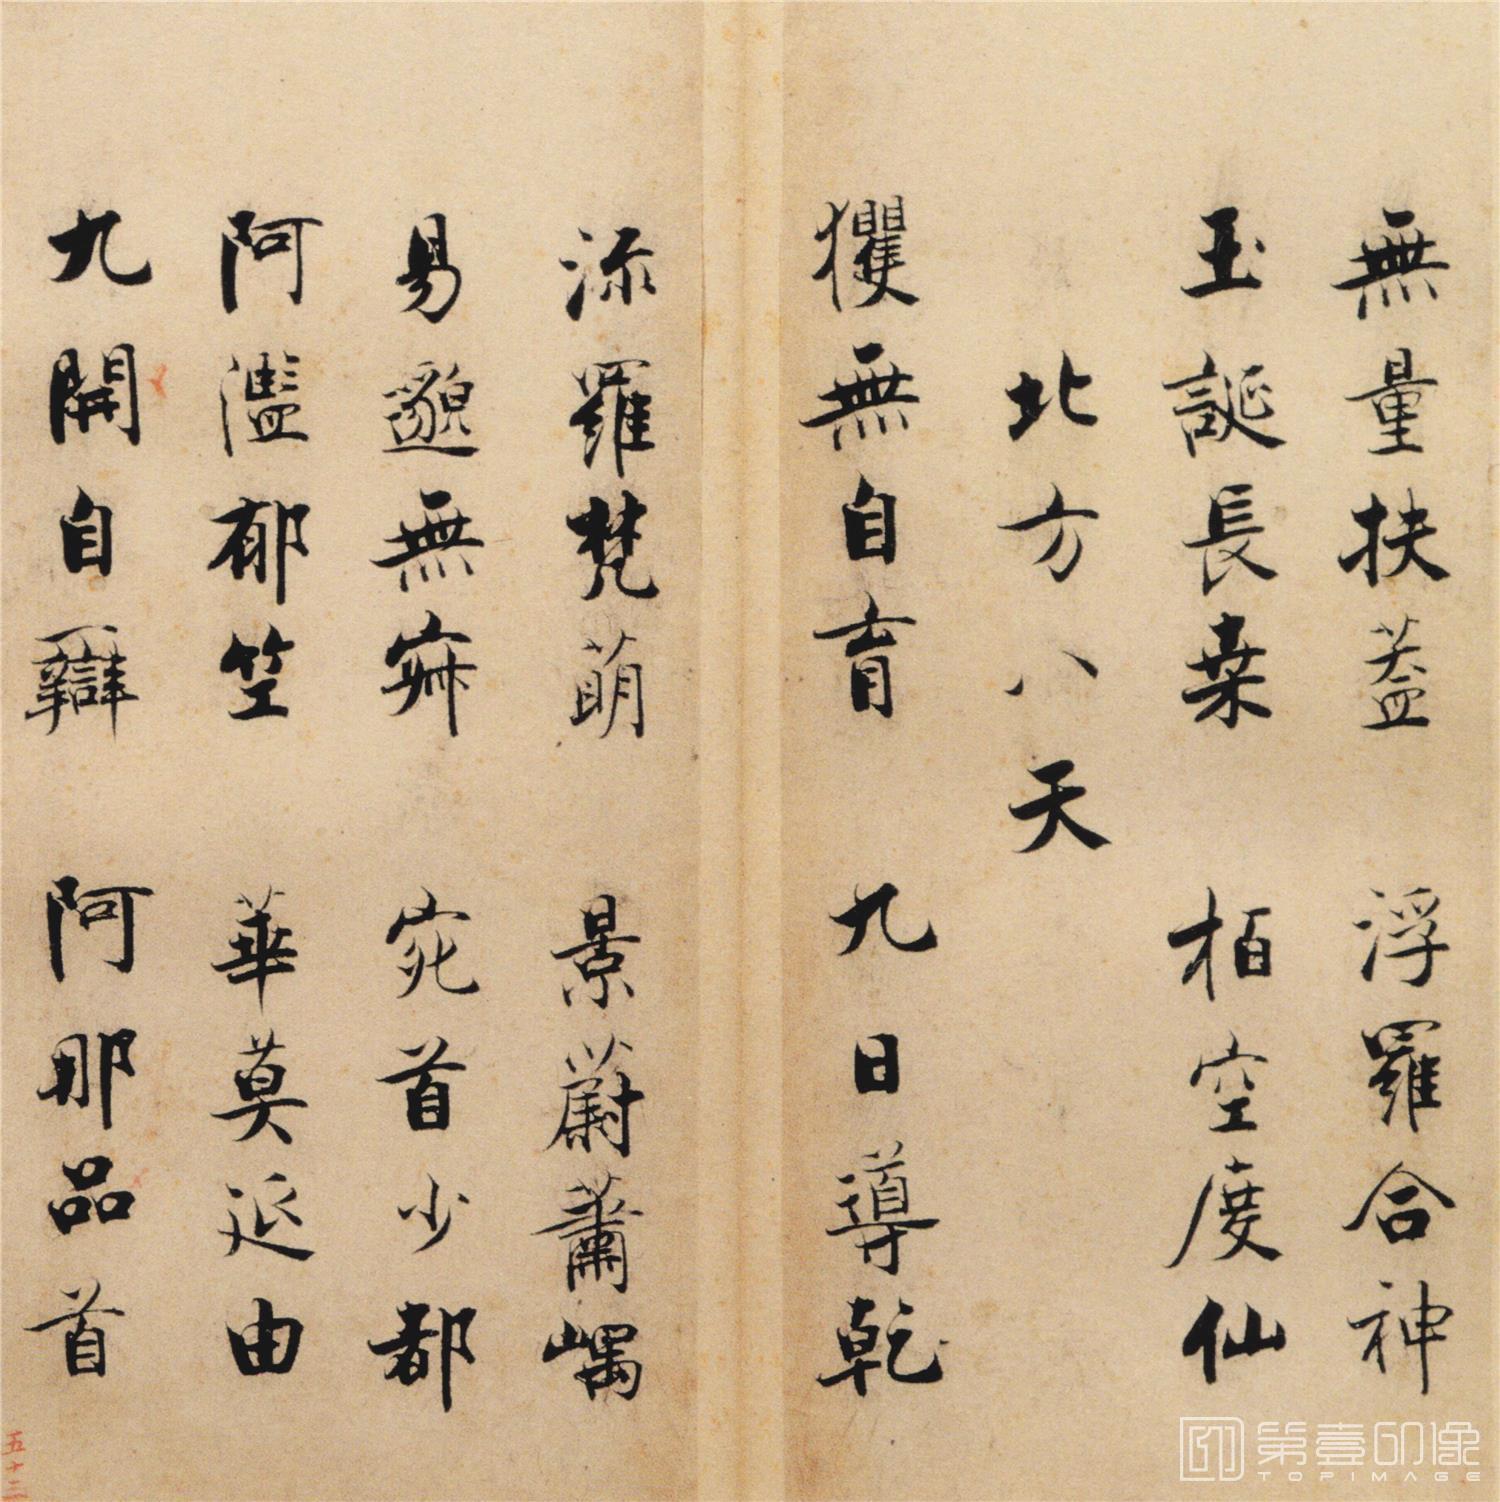 無量扶蓋 浮羅合神
玉誕長桑 栢空度仙
北方八天
玃無自育 九日導乾
流羅梵萌 景蔚蕭嵎
易邈無寂 宛首少都
阿濫郁竺 華莫延由
九開自辯 阿那品首
五十三
第壹印像
TOPIMAGE